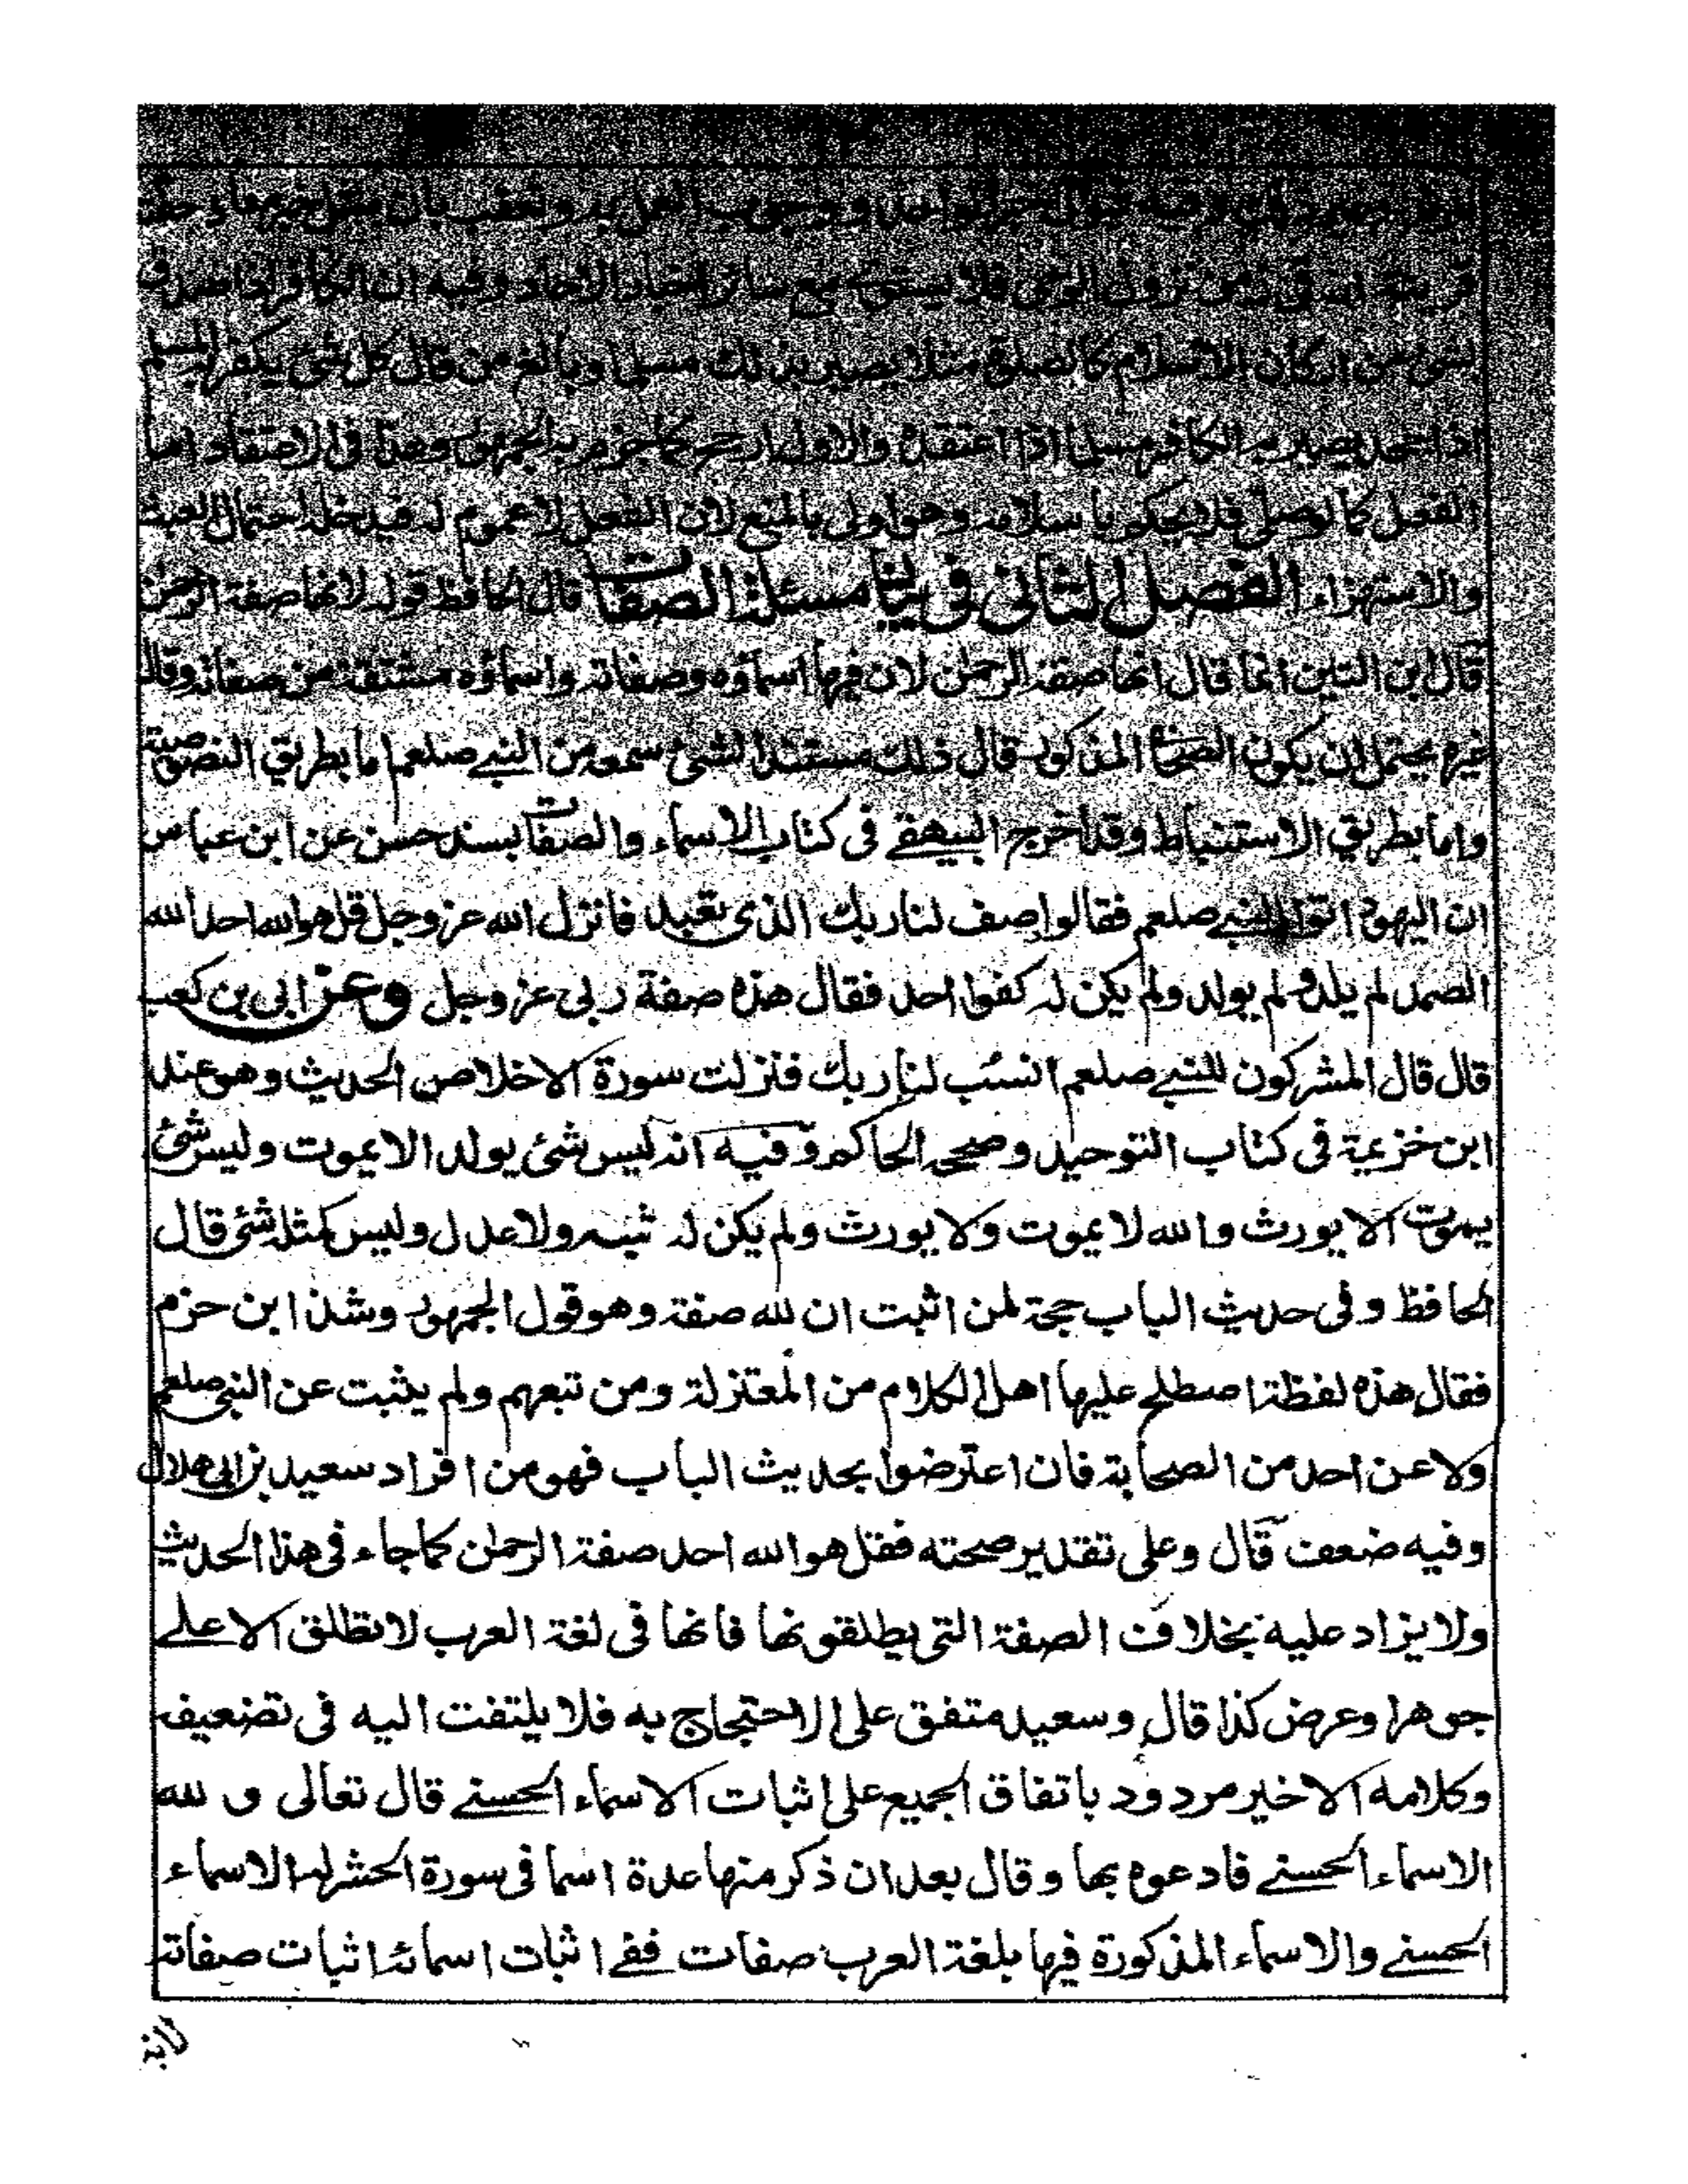 وفيه قبول خبر الواحد ووجوب العمل به وتعقب بان مثل خبرهما
قرينة انه في زمن نزول الوحي فلا يستوي مع سائر اخبار الاحاد وفيه ان الكافر اذا صدق
لشئ من اركان الاسلام كالصلوة مثلا يصير بذلك مسلما وبالغ من قال كل شئ يكفر به المسلم
اذا جحده يصير به الكافر مسلما اذا اعتقده والاول ارجح كما جزم به الجمهور وهذا في الاعتقاد اما
الفعل كما لو صلى فلا يحكم باسلامه وهو اولى بالمنع لان الفعل لا عموم له فيدخله احتمال العبث
والاستهزاء الفصل الثاني في بيان مسئلة الصفات قال الحافظ قوله لانها صفة الرحمن
قال بن التين انما قال انها صفة الرحمن لان فيها اسماؤه وصفاته واسماؤه مشتقة من صفاته وقال
غيره يحتمل ان يكون الصحابي المذكور قال ذلك مستندا لشئ سمعه من النبي صلعم اما بطريق النصوصية
واما بطريق الاستنباط وقد اخرج البيهقي في كتاب الاسماء والصفات بسند حسن عن ابن عباس
ان اليهود اتوا النبي صلعم فقالوا صف لنا ربك الذي تعبد فانزل الله عز وجل قل هو الله احد الله
الصمد لم يلد ولم يولد ولم يكن له كفوا احد فقال هذه صفة ربي عز وجل وعن ابي بن كعب
قال قال المشركون للنبي صلعم انسب لنا ربك فنزلت سورة الاخلاص الحديث وهو عند
ابن خزيمة في كتاب التوحيد وصححه الحاكم وفيه انه ليس شئ يولد الا يموت وليس شئ
يموت الا يورث والله لا يموت ولا يورث ولم يكن له شبه ولا عدل وليس كمثله شئ قال
الحافظ وفي حديث الباب حجة لمن اثبت ان لله صفة وهو قول الجمهور وشذ ابن حزم
فقال هذه لفظة اصطلح عليها اهل الكلام من المعتزلة ومن تبعهم ولم يثبت عن النبي صلعم
ولا عن احد من الصحابة فان اعترضوا بحديث الباب فهو من افراد سعيد بن ابي هلال
وفيه ضعف قال وعلى تقدير صحته فقل هو الله احد صفة الرحمن كما جاء في هذا الحديث
ولا يزاد عليه بخلاف الصفة التي يطلقونها فانها في لغة العرب لا تطلق الا على
جوهر او عرض كذا قال وسعيد متفق على الاحتجاج به فلا يلتفت اليه في تضعيفه
وكلامه الاخير مردود باتفاق الجميع على اثبات الاسماء الحسنى قال تعالى و لله
الاسماء الحسنى فادعوه بها وقال بعد ان ذكر منها عدة اسما في سورة الحشر له الاسماء
الحسنى والاسماء المذكورة فيها بلغة العرب صفات ففي اثبات اسمائه اثبات صفاته
لانه